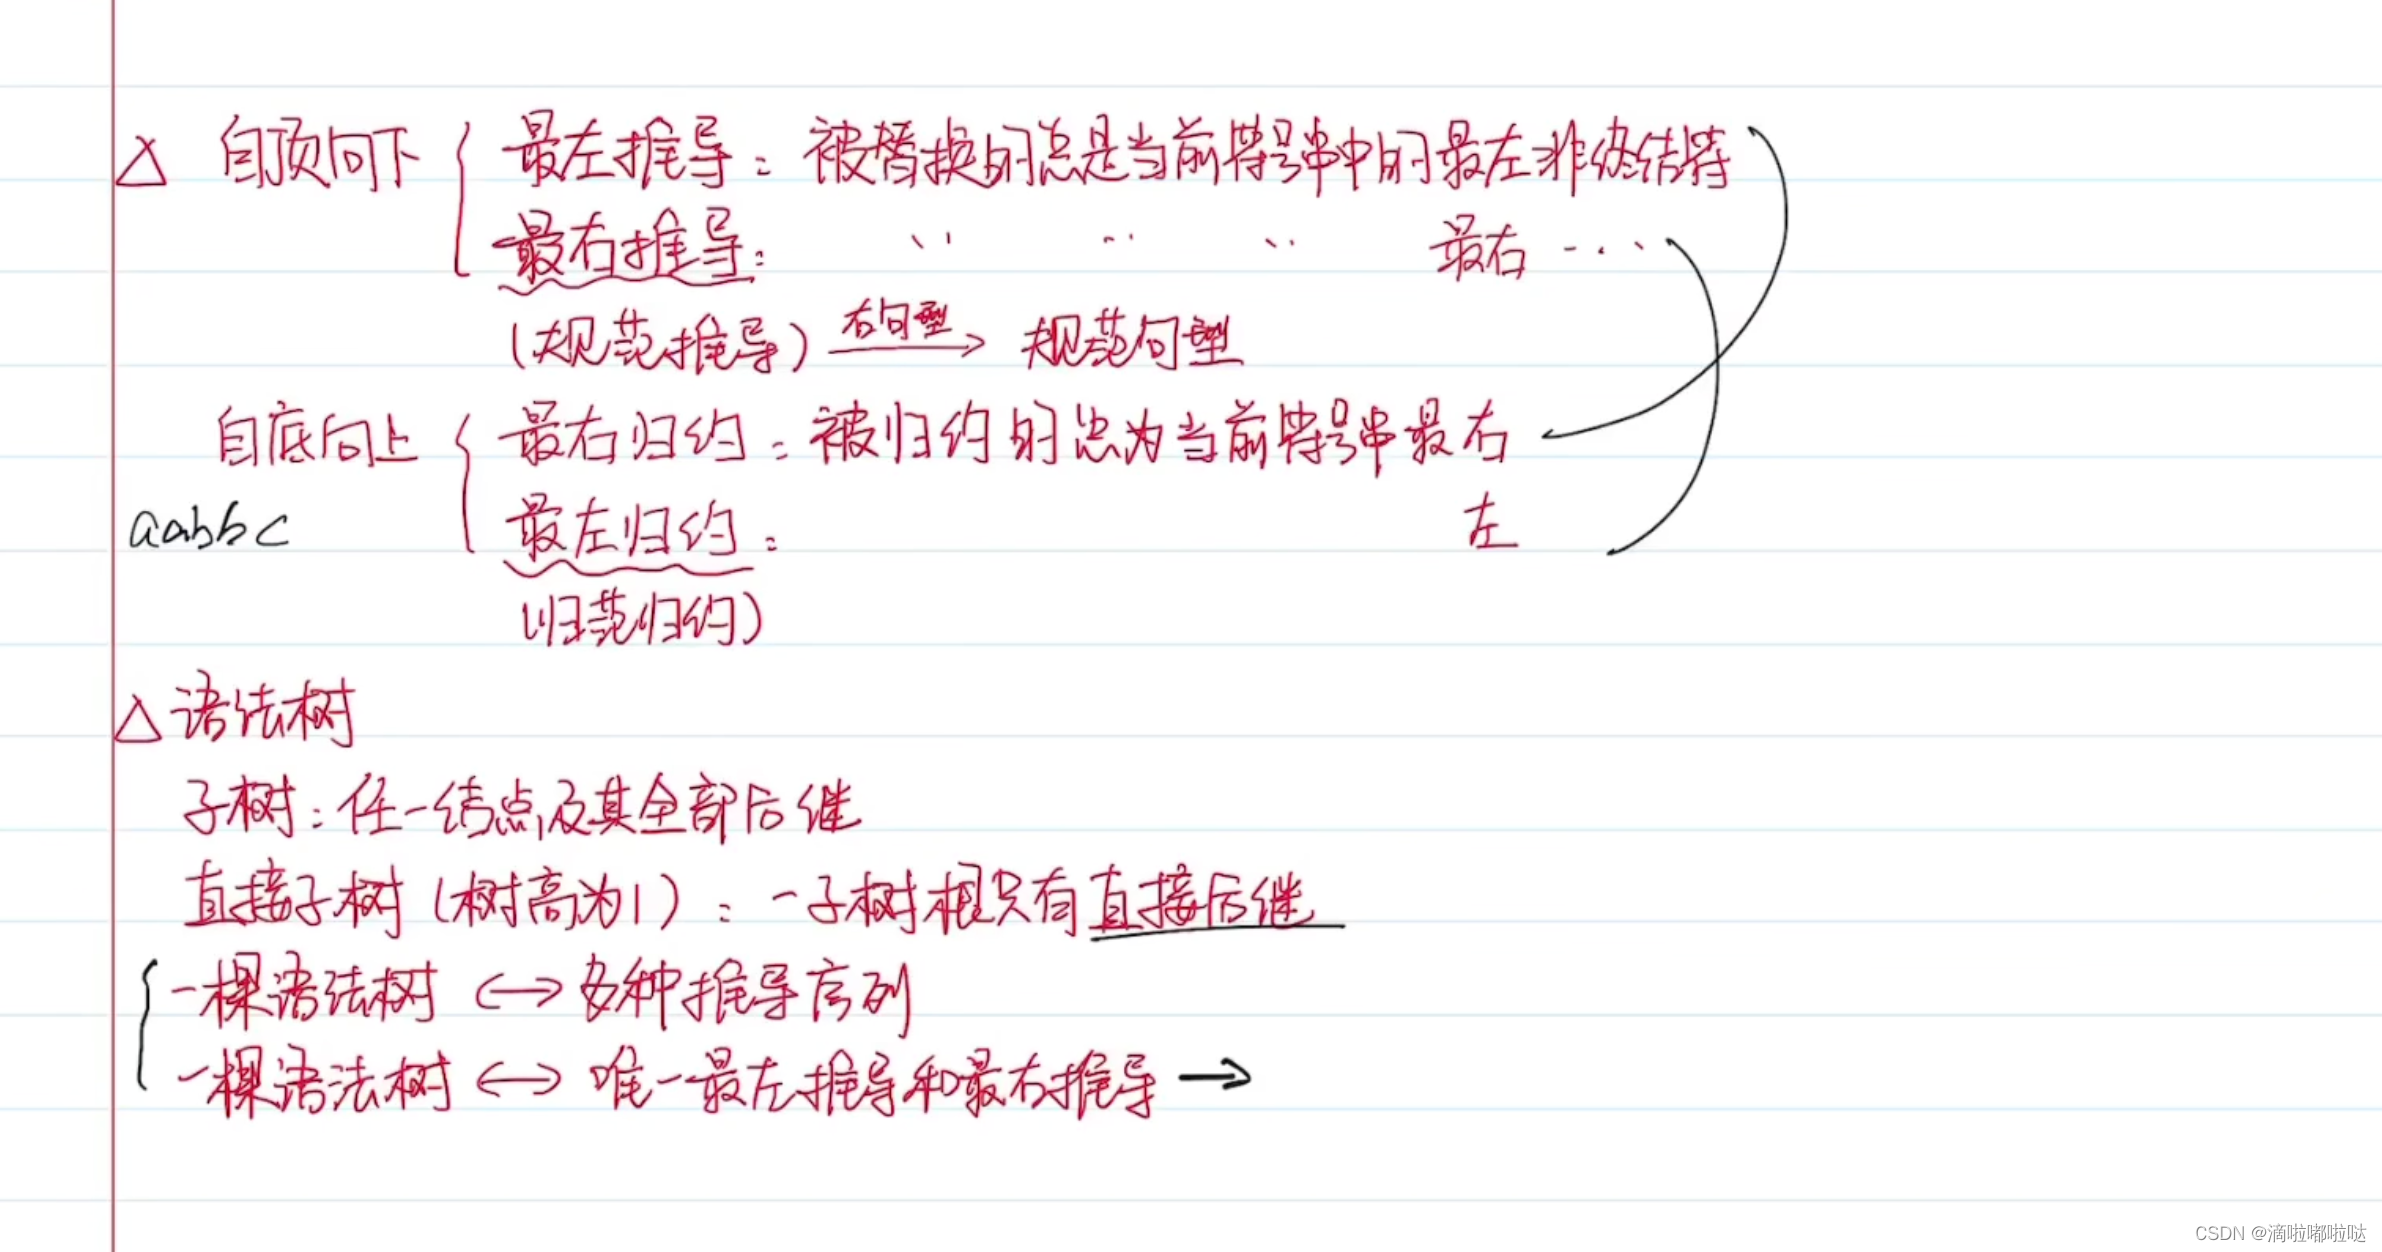 △ 自顶向下 { 最左推导：被替换的总是当前符号串中的最左非终结符
最右推导： 〃 〃 〃 最右 ‥‥
(规范推导) 右句型→ 规范句型
自底向上 { 最右归约：被归约的总为当前符号串最右
aabbc 最左归约： 左
(归范归约)
△ 语法树
子树：任一结点及其全部后继
直接子树 (树高为1)：一子树根只有直接后继
{ 一棵语法树 ↔ 多种推导序列
一棵语法树 ↔ 唯一最左推导和最右推导 →
CSDN @滴啦嘟啦哒